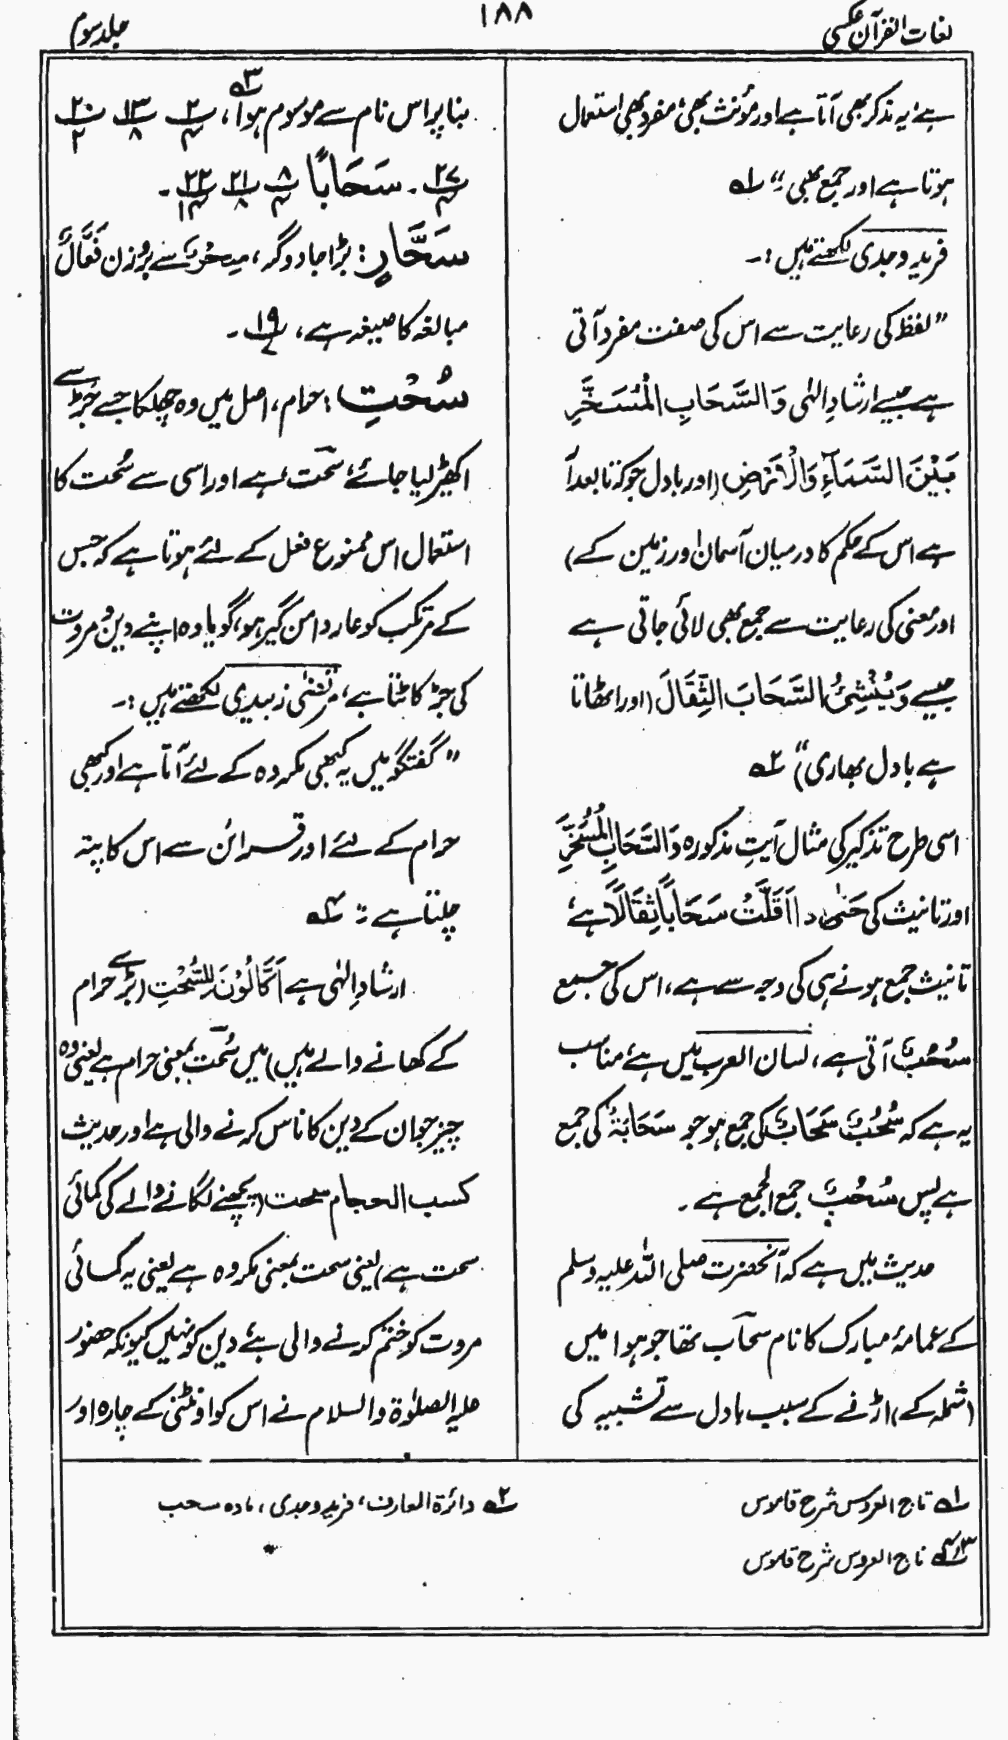 لغات القرآن عکسی
۱۸۸
جلد سوم
ہے یہ مذکر بھی آتا ہے اور مؤنث بھی، مفرد بھی استعمال
ہوتا ہے اور جمع بھی‘‘ ۱ھ
فرید وجدی لکھتے ہیں :۔
’’لفظ کی رعایت سے اس کی صفت مفرد آتی
ہے جیسے ارشادِ الٰہی وَالسَّحَابِ الْمُسَخَّرِ
بَیْنَ السَّمَآءِ وَالْاَرْضِ (اور بادل جو کہ تابعدار
ہے اس کے حکم کا درمیان آسمان اور زمین کے)
اور معنی کی رعایت سے جمع بھی لائی جاتی ہے
جیسے وَیُنْشِئُ السَّحَابَ الثِّقَالَ (اور اٹھاتا
ہے بادل بھاری)‘‘ ۲ھ
اسی طرح تذکیر کی مثال آیتِ مذکورہ وَالسَّحَابِ الْمُسَخَّرِ
اور تانیث کی حَتّٰی اِذَا اَقَلَّتْ سَحَابًا ثِقَالًا ہے،
تانیث جمع ہونے ہی کی وجہ سے ہے، اس کی جمع
سُحُبٌ آتی ہے، لسان العرب میں ہے، مناسب
یہ ہے کہ سُحُبٌ سَحَابٌ کی جمع ہو جو سَحَابَۃٌ کی جمع
ہے پس سُحُبٌ جمع الجمع ہے۔
حدیث میں ہے کہ آنحضرت صلی اللہ علیہ وسلم
کے عمامۂ مبارک کا نام سحاب تھا جو ہوا میں
(شملہ کے) اڑنے کے سبب بادل سے تشبیہ کی
بنا پر اس نام سے موسوم ہوا، ۳ھ ۲/۴ ۱۳/۸ ۲۰/۲
۲۷/۴۔ سَحَابًا ۸/۱۴ ۲۱/۸ ۲۲/۱۴۔
سَحَّارٍ : بڑا جادوگر، سِحْرٌ سے بروزن فَعَّالٌ
مبالغہ کا صیغہ ہے، ۱۹/۷۔
سُحْتِ : حرام، اصل میں وہ چھلکا جسے جڑ سے
اکھیڑ لیا جائے، سحت، ہے اور اسی سے سُحت کا
استعمال اس ممنوع فعل کے لئے ہوتا ہے کہ جس
کے مرتکب کو عار دامن گیر ہو، گویا وہ اپنے دین و مروت
کی جڑ کاٹتا ہے، مرتضیٰ زبیدی لکھتے ہیں :۔
’’گفتگو میں یہ کبھی مکروہ کے لئے آتا ہے اور کبھی
حرام کے لئے اور قرائن سے اس کا پتہ
چلتا ہے‘‘ ۴ھ
ارشادِ الٰہی ہے اَکّٰلُوْنَ لِلسُّحْتِ (بڑے حرام
کے کھانے والے ہیں) میں سُحت بمعنی حرام ہے یعنی وہ
چیز جو ان کے دین کا ناس کرنے والی ہے اور حدیث
کسب الحجام سحت (پچھنے لگانے والے کی کمائی
سحت ہے) یعنی سحت بمعنی مکروہ ہے یعنی یہ کمائی
مروت کو ختم کرنے والی ہے، دین کو نہیں کیونکہ حضور
علیہ الصلوٰۃ والسلام نے اس کو اونٹنی کے چارہ اور
۱ھ تاج العروس شرح قاموس
۲ھ دائرۃ المعارف، فرید وجدی، مادہ سحب
۳،۴ھ تاج العروس شرح قاموس